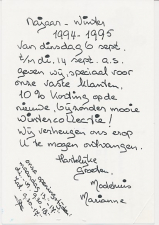 Najaar - Winter
1994-1995
Van dinsdag 6 sept.
t/m di, 14 sept. a.s.
geven wij, speciaal voor
onze vaste klanten,
10% korting op de
nieuwe, bijzonder mooie
wintercollectie!
Wij verheugen ons erop
U te mogen ontvangen.
Hartelijke
Groeten
Modehuis
Marianne
onze openingstijden